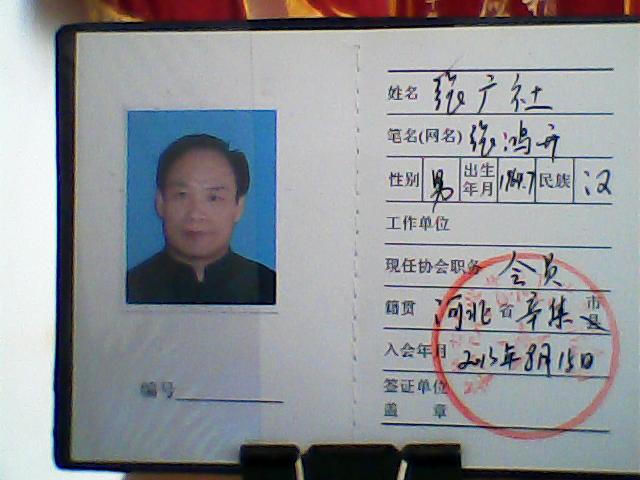 姓名 张广社
笔名(网名) 张鸿舟
性别 男 出生年月 1964.7 民族 汉
工作单位
现任协会职务 会员
籍贯 河北省辛集市县
入会年月 2015年8月15日
签证单位
盖 章
编号